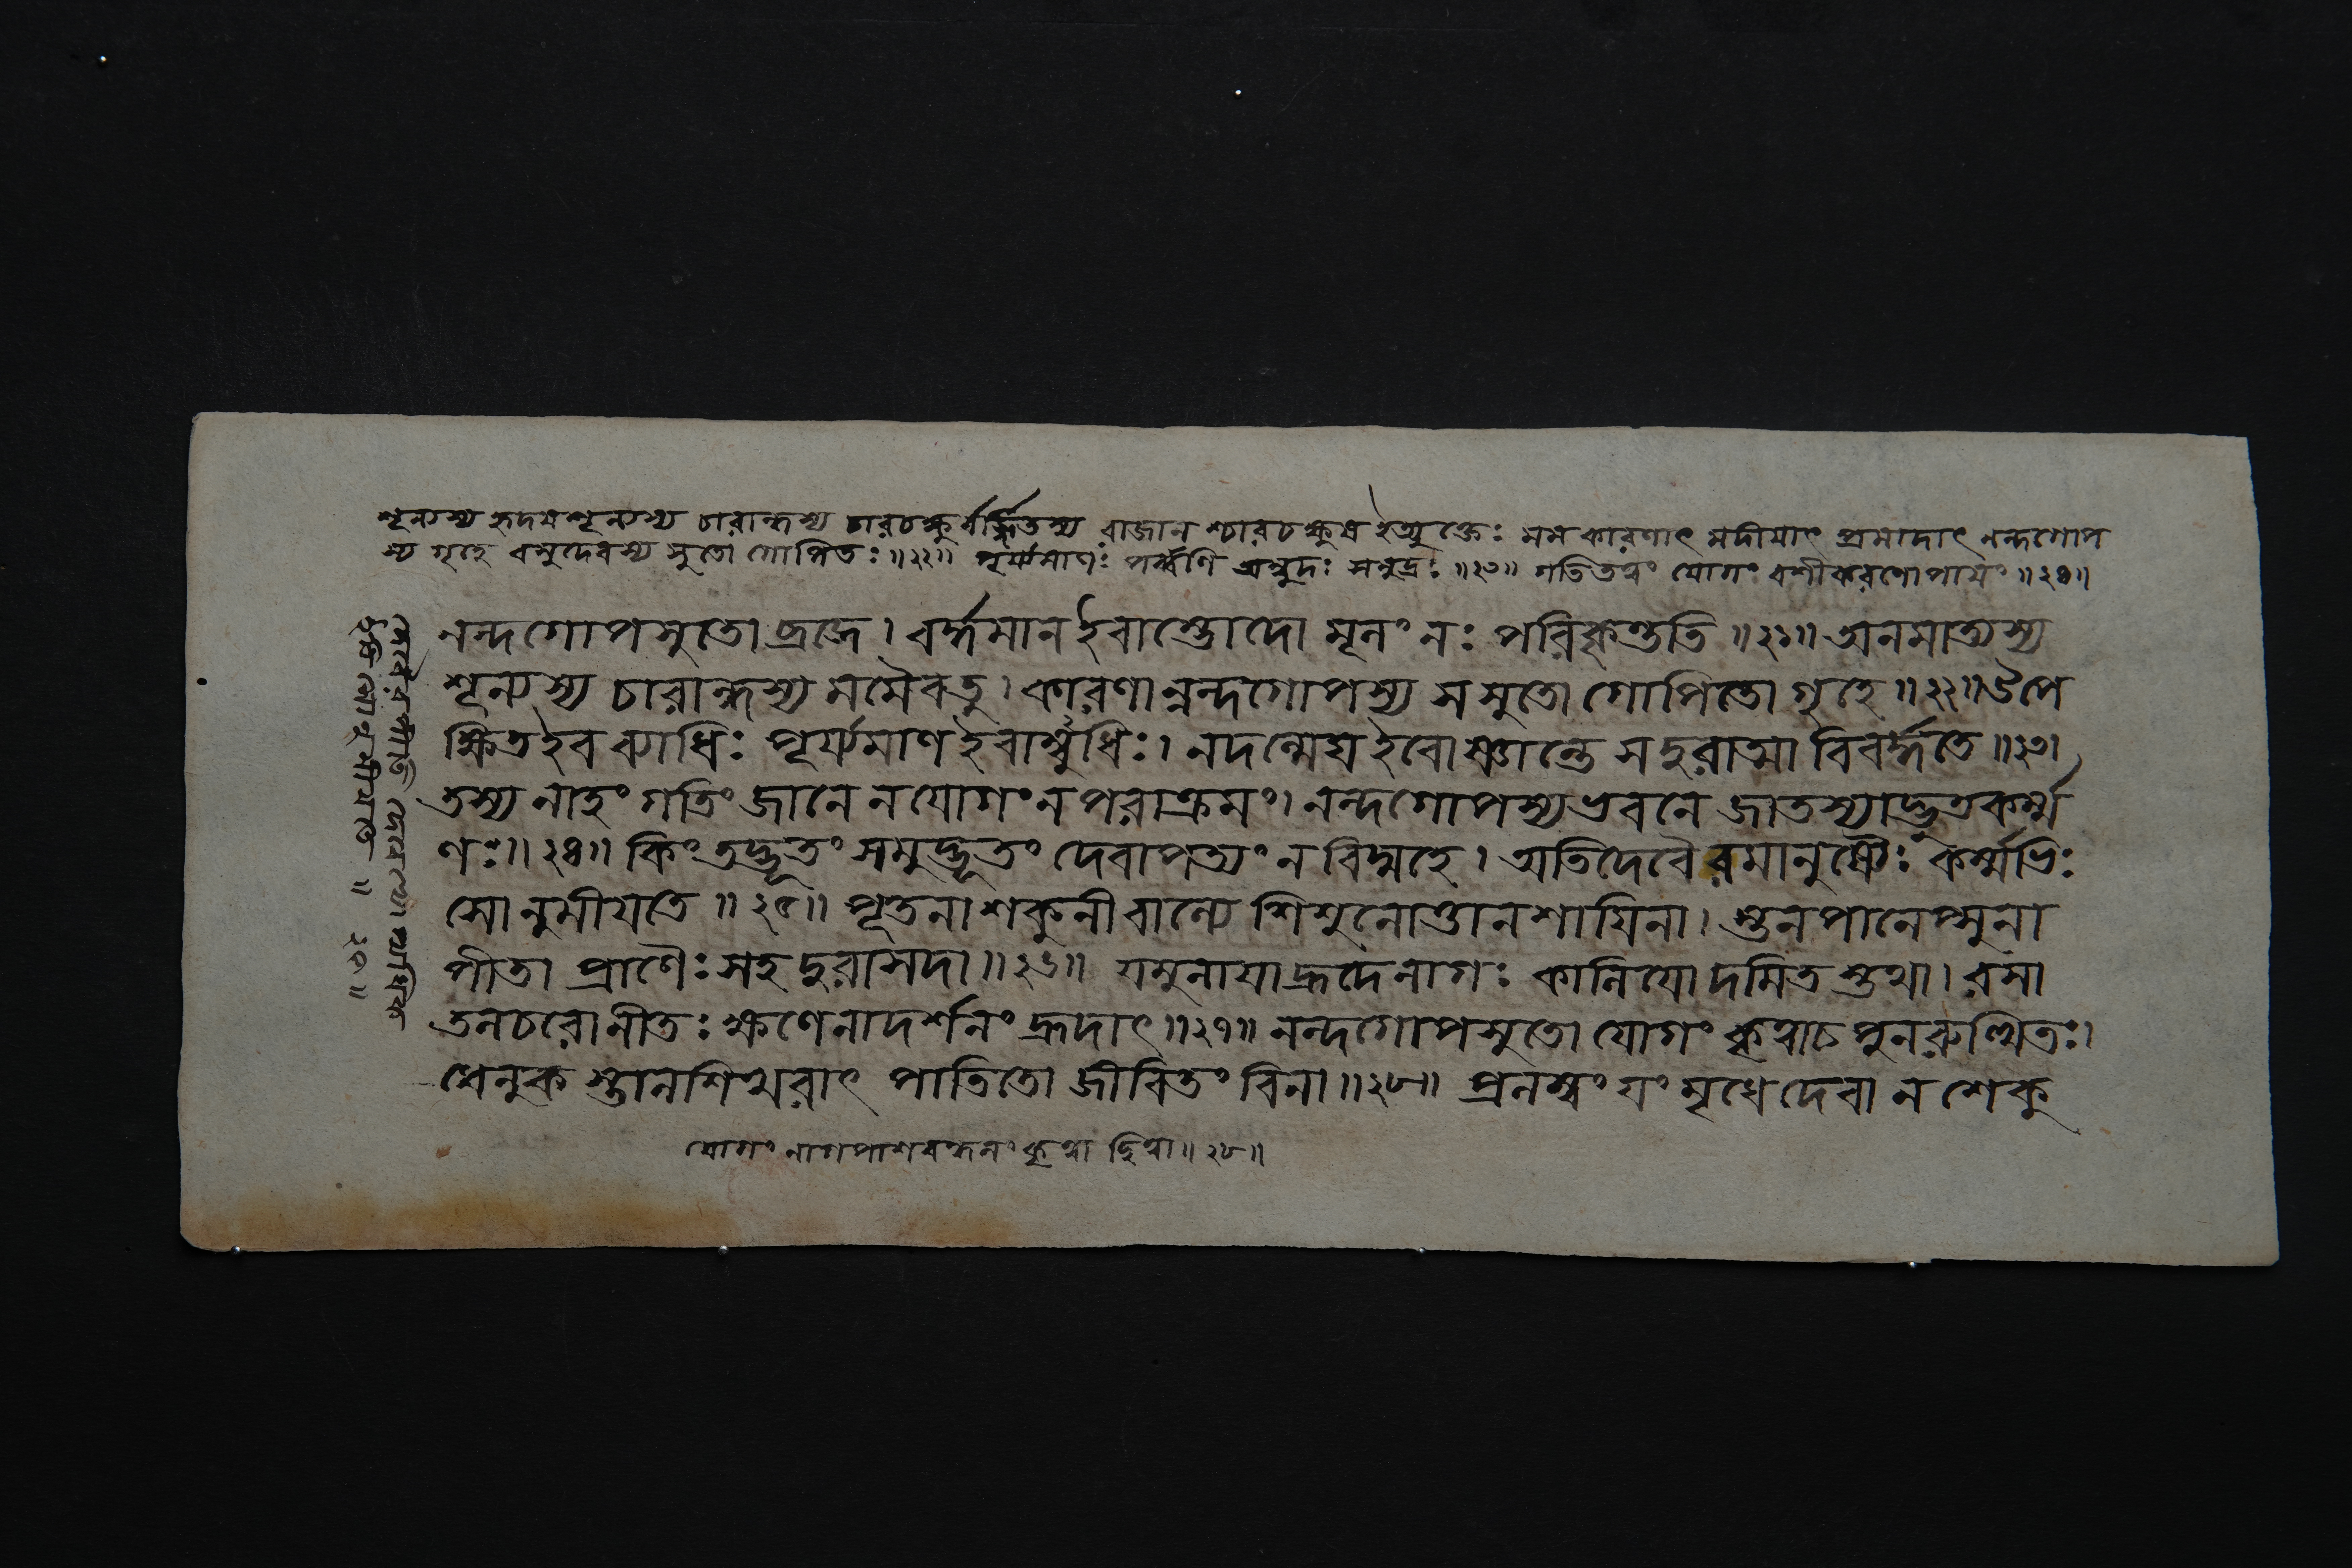 শূন্যস্য হৃদয়শূন্যস্য চারান্ধস্য চারচক্ষুর্ব্বর্জ্জিতস্য রাজান শ্চারচক্ষুষ ইত্যুক্তেঃ মম কারণাৎ মদীয়াৎ প্রমাদাৎ নন্দগোপ
স্য গৃহে বসুদেবস্য সুতো গোপিতঃ ॥ ২২ ॥ পূর্য্যমাণঃ পর্ব্বণি অম্বুদঃ সমুদ্রঃ ॥ ২৩ ॥ গতিতয়ং যোগং বশীকরণোপায়ং ॥ ২৪ ॥
নন্দগোপসুতো ব্রজে । বর্দ্ধমান ইবাম্ভোদো মূলং নঃ পরিকৃন্ততি ॥ ২১ ॥ অনমাত্যস্য
শূন্যস্য চারান্ধস্য মমৈবতু । কারণান্নন্দগোপস্য স সুতো গোপিতো গৃহে ॥ ২২ ॥ উপে
ক্ষিত ইব ব্যাধিঃ পূর্য্যমাণ ইবাম্বুধিঃ । নদন্মেঘ ইবোষ্ণান্তে স দুরাত্মা বিবর্দ্ধতে ॥ ২৩ ।
তস্য নাহং গতিং জানে ন যোগং ন পরাক্রমং । নন্দগোপস্য ভবনে জাতস্যাদ্ভুতকর্ম্ম
ণঃ ॥ ২৪ ॥ কিং তদ্ভূতং সমুদ্ভূতং দেবাপত্যং ন বিদ্মহে । অতিদেবৈরমানুষ্যৈঃ কর্ম্মভিঃ
সোনুমীয়তে ॥ ২৫ ॥ পূতনা শকুনী বাল্যে শিশুনোত্তানশায়িনা । স্তনপানেপ্সুনা
পীতা প্রাণৈঃ সহ দুরাসদা ॥ ২৬ ॥ যমুনায়া হ্রদে নাগঃ কালিয়ো দমিত স্তথা । রসা
তলচরো নীতঃ ক্ষণেনাদর্শনং হ্রদাৎ ॥ ২৭ ॥ নন্দগোপসুতো যোগং কৃত্বা চ পুনরুত্থিতঃ ।
ধেনুক স্তালশিখরাৎ পাতিতো জীবিতং বিনা ॥ ২৮ ॥ প্রলম্বং যং মৃধে দেবা ন শেকু
যোগং নাগপাশবন্ধনং কৃত্বা হিত্বা ॥ ২৮ ॥